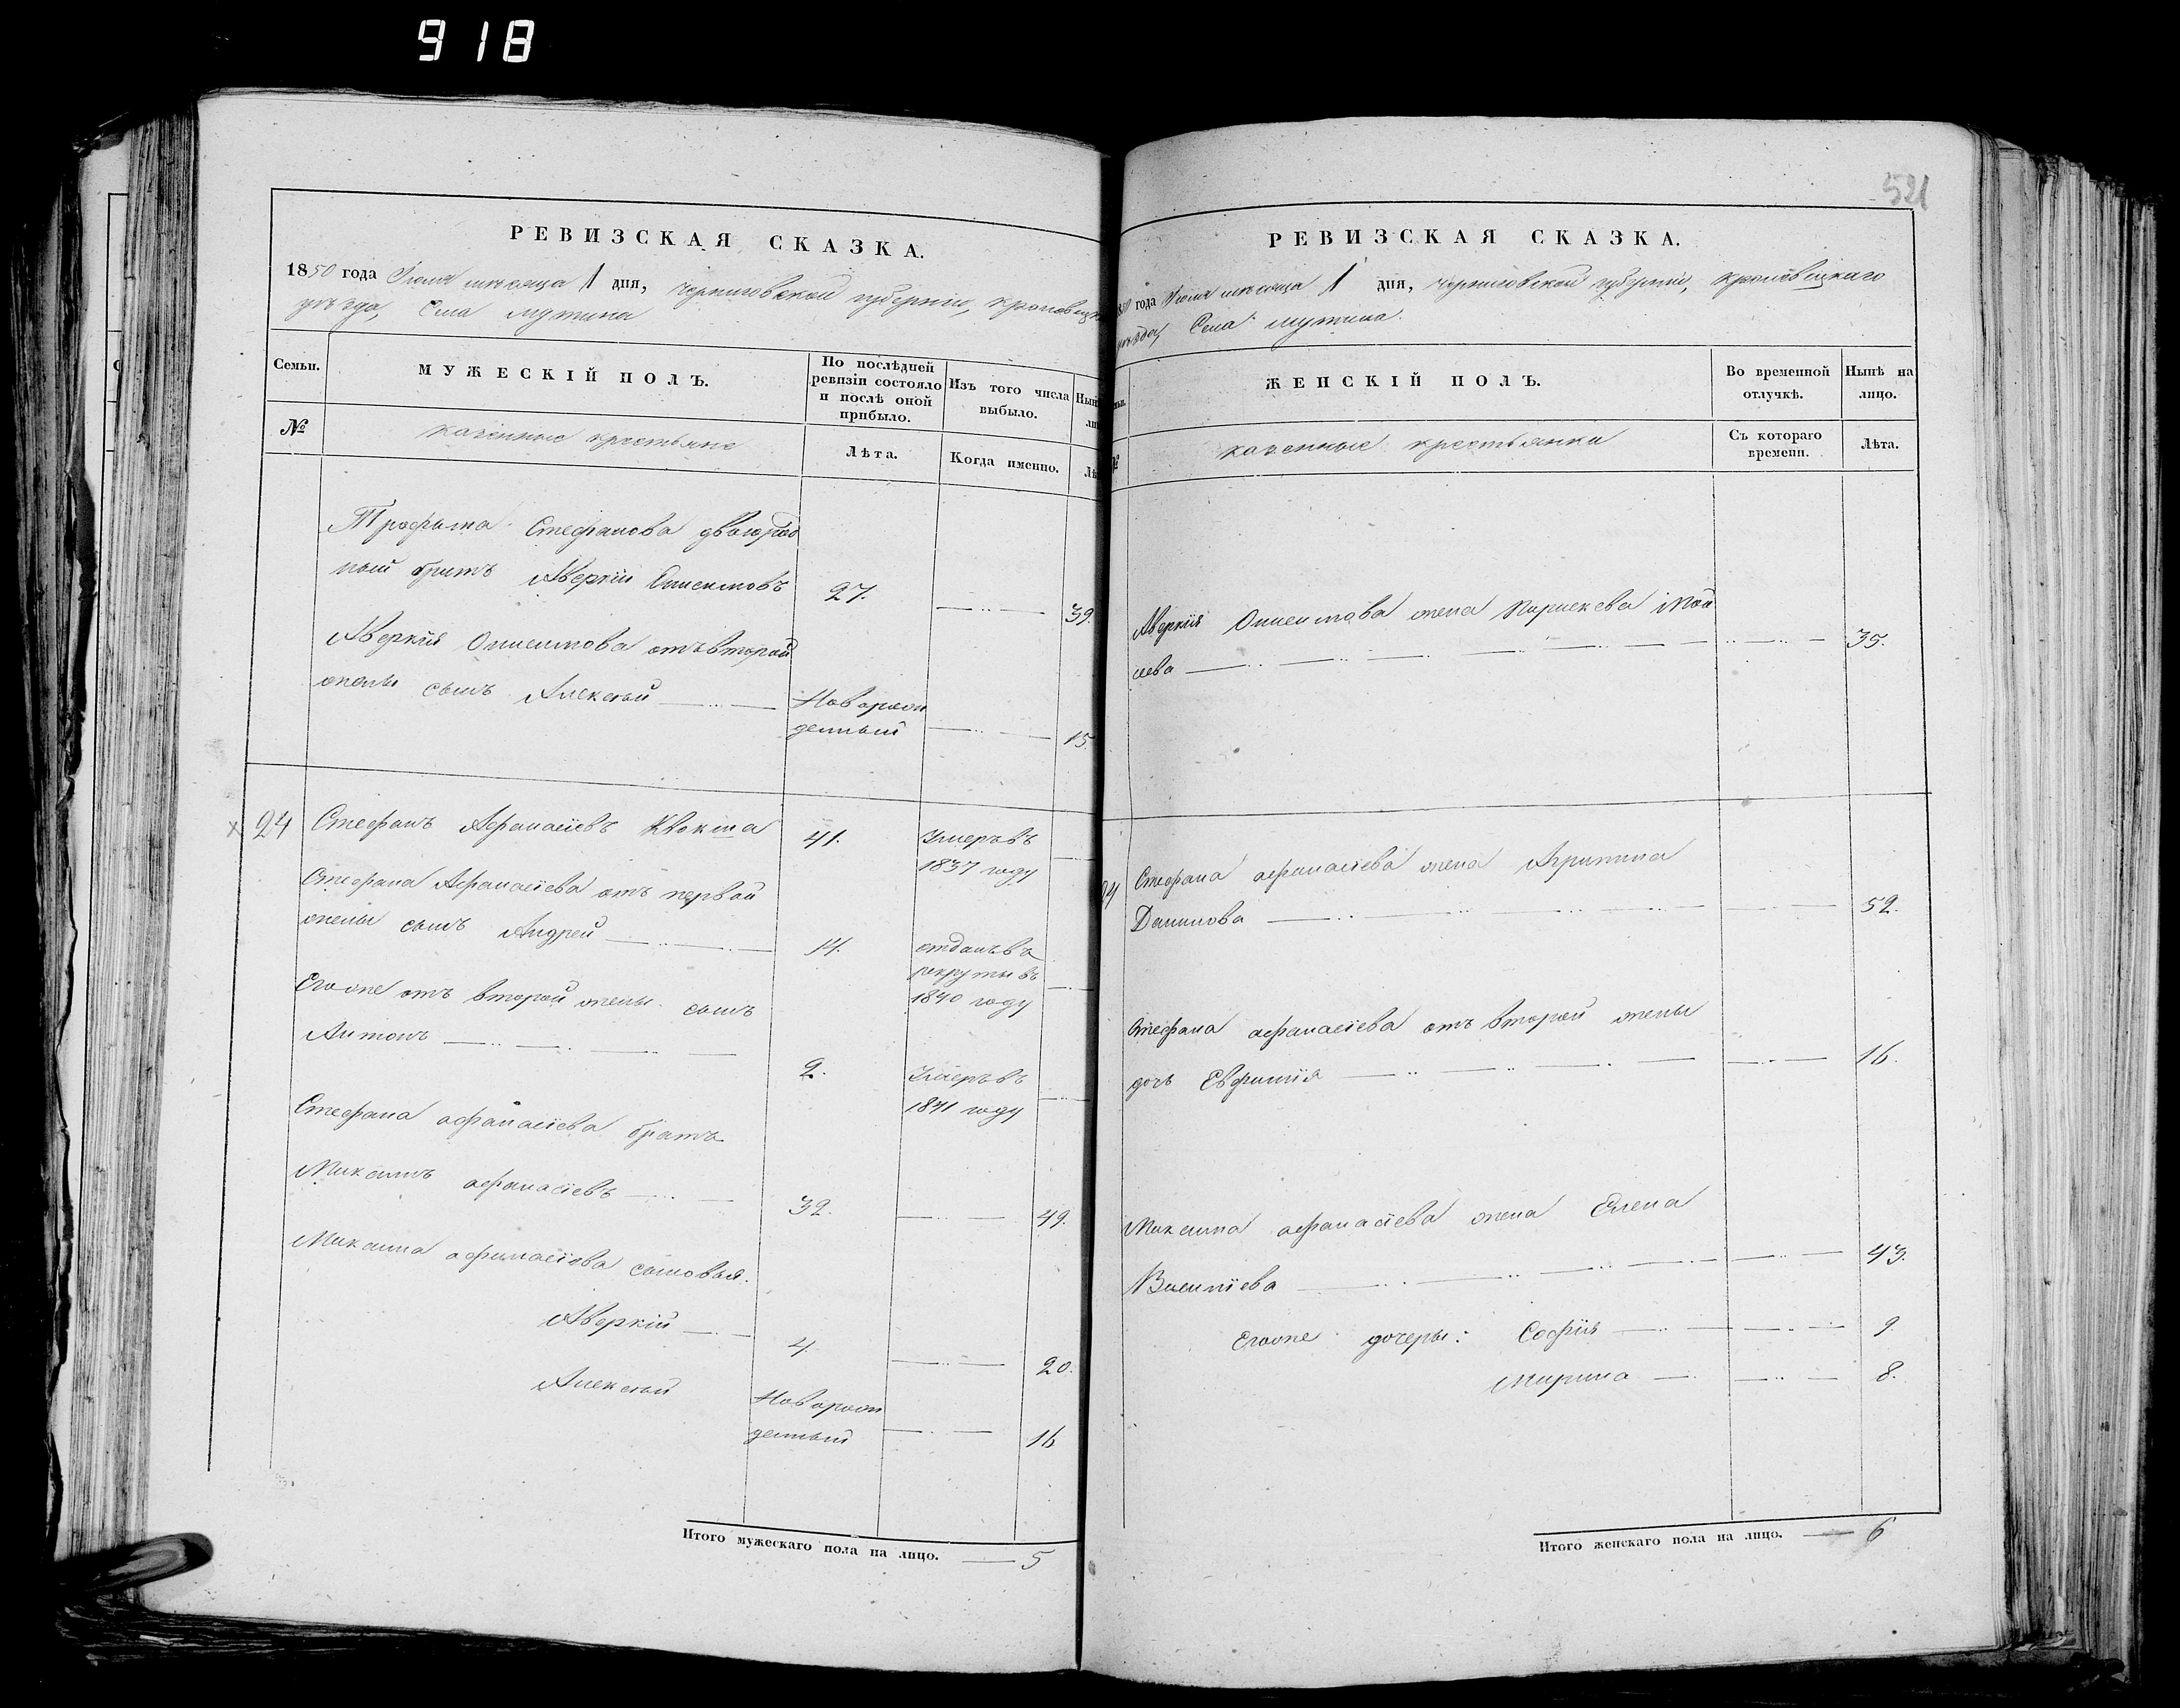 918
РЕВИЗСКАЯ СКАЗКА.
1850 года Июня месяца 1 дня, Черниговской губернии, Кролевецк
уезда, Села Мутина
Семьи.
МУЖЕСКІЙ ПОЛЪ.
По послѣдней ревизіи состояло и послѣ оной прибыло.
Изъ того числа выбыло.
№
казенные крестьяне
Лѣта.
Когда именно.
Трофима Стефанова двоюрод
ный братъ Аверкій Онисимовъ 27. 39.
Аверкія Онисимова отъ второй
жены сынъ Алексѣй Новорож
денный 15.
24 Стефанъ Афанасіевъ Квокша 41. Умеръ въ
1837 году
Стефана Афанасіева отъ первой
жены сынъ Андрей 14. отданъ въ
рекруты въ
1840 году
Егоже отъ второй жены сынъ
Антонъ 2. Умеръ въ
1841 году
Стефана афанасіева братъ
Максимъ афанасіевъ 32. 49.
Максима афанасіева сыновья.
Аверкій 4. 20.
Алексѣй Новорож
денный 16
Итого мужескаго пола на лицо. 5
521
РЕВИЗСКАЯ СКАЗКА.
года Июня месяца 1 дня, Черниговской губерніи, Кролевецкаго
уезда, Села Мутина.
ЖЕНСКІЙ ПОЛЪ.
Во временной отлучкѣ.
Нынѣ на лицо.
№
казенные крестьянки
Съ котораго времени.
Лѣта.
Аверкія Онисимова жена Параскева Мои
сеева 35.
24 Стефана афанасіева жена Агрипина
Данилова 52.
Стефана афанасіева отъ второй жены
дочь Евфимія 16.
Максима афанасіева жена Елена
Василіева 43.
Егоже дочеры: Софія 9.
Марина 8.
Итого женскаго пола на лицо. 6